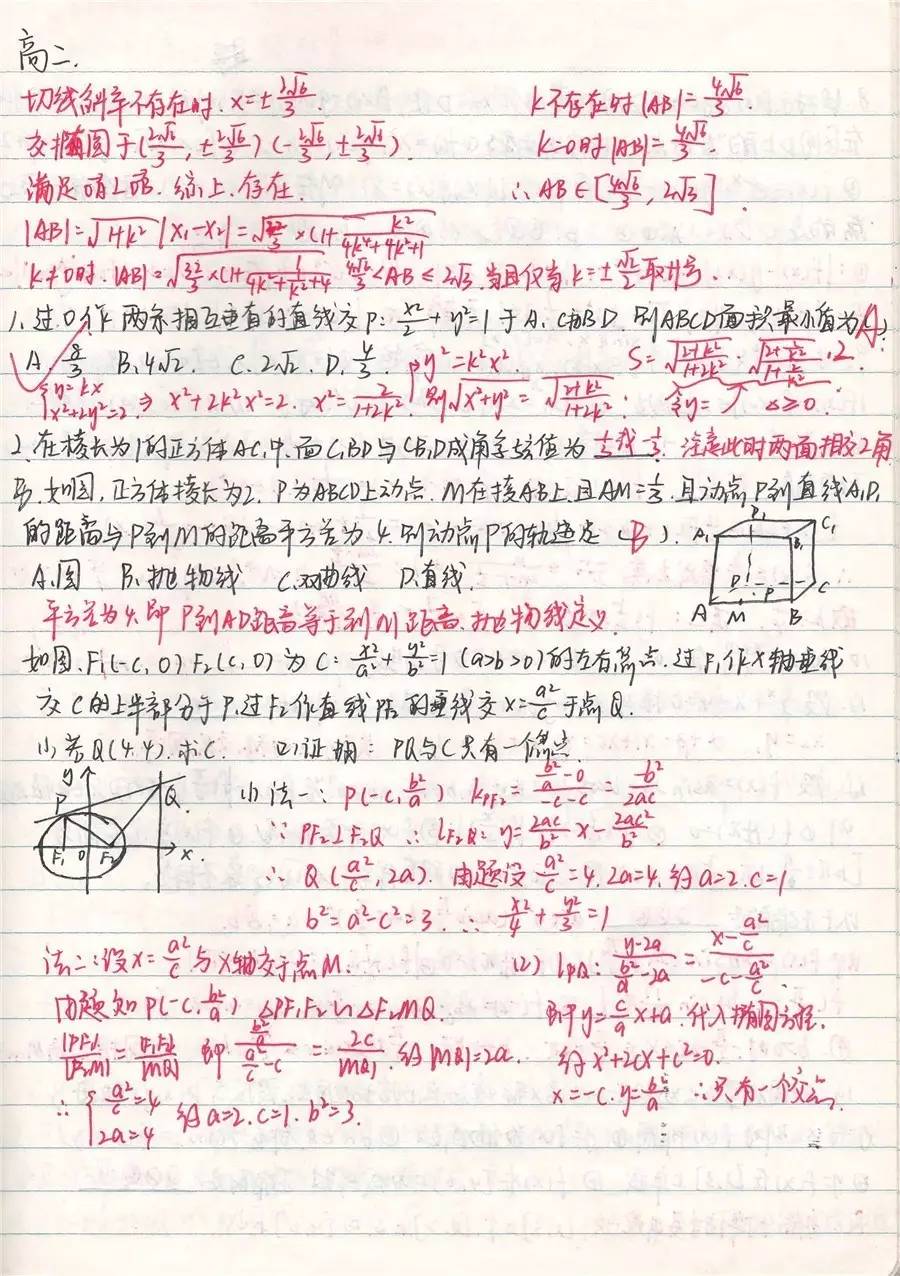 高二.
切线斜率不存在时. x=±2√6/3
k不存在时|AB|=4√6/3.
交椭圆于(2√6/3, ±2√6/3) (-2√6/3, ±2√6/3).
k=0时|AB|=4√6/3
满足 综上.存在.
∴AB∈[4√6/3, 2√3].
|AB|=√1+k² |x₁-x₂|=√32/3×(1+k²/4k⁴+4k²+1
k≠0时.|AB|=√32/3×(1+1/4k²+1/k²+4 4√6/3<AB≤2√3.当且仅当k=±√2/2取等号.
1.过O作两条相互垂直的直线交P:x²/2+y²=1于A.C和B.D.则ABCD面积最小值为(A)
A.8/3 B.4√2. C.2√2. D.4/3.
y²=k²x². S=√2+2k²/1+2k²·√2+2/k²/1+2/k²·2.
{y=kx x²+2y²=2 ⇒ x²+2k²x²=2. x²=2/1+2k² 则√x²+y²=√2+2k²/1+2k². 令y= Δ≥0
2.在棱长为1的正方体AC₁中.面C₁BD与CB₁D₁成角余弦值为1/3或-1/3. 注意此时两面相交2角
3.如图.正方体棱长为2. P为ABCD上动点. M在棱AB上.且AM=1/3.且动点P到直线A₁D₁
的距离与P到M的距离平方差为4.则动点P的轨迹是(B).
A.圆 B.抛物线 C.双曲线 D.直线.
D₁ C₁ A₁ B₁ D P C A M B
平方差为4.即P到AD距离等于到M距离.抛物线定义.
如图.F₁(-c,0)F₂(c,0)为C:x²/a²+y²/b²=1(a>b>0)的左右焦点.过F₁作X轴垂线
交C的上半部分于P.过F₂作直线PF₂的垂线交x=a²/c于点Q.
(1)若Q(4.4).求C. (2)证明:PQ与C只有一个
y P Q F₁ O F₂ x.
(1)法一:P(-c,b²/a) kPF₂=b²/a-0/-c-c=-b²/2ac
∵PF₂⊥F₂Q ∴lF₂Q:y=2ac/b²x-2ac²/b².
∴Q(a²/c,2a).由题设a²/c=4.2a=4.得a=2.c=1
b²=a²-c²=3.∴x²/4+y²/3=1
法二:设x=a²/c与X轴交于点M.
由题知P(-c,b²/a) △PF₁F₂∽△F₂MQ.
|PF₁|/|F₂M|=|F₁F₂|/|MQ| 即b²/a/a²/c-c=2c/|MQ|.得|MQ|=2a.
∴{a²/c=4 2a=4 得a=2.c=1.b²=3.
(2)lPQ:y-2a/b²/a-2a=x-a²/c/-c-a²/c.
即y=c/ax+a.代入椭圆方程.
得x²+2cx+c²=0.
x=-c.y=b²/a ∴只有一个交点.